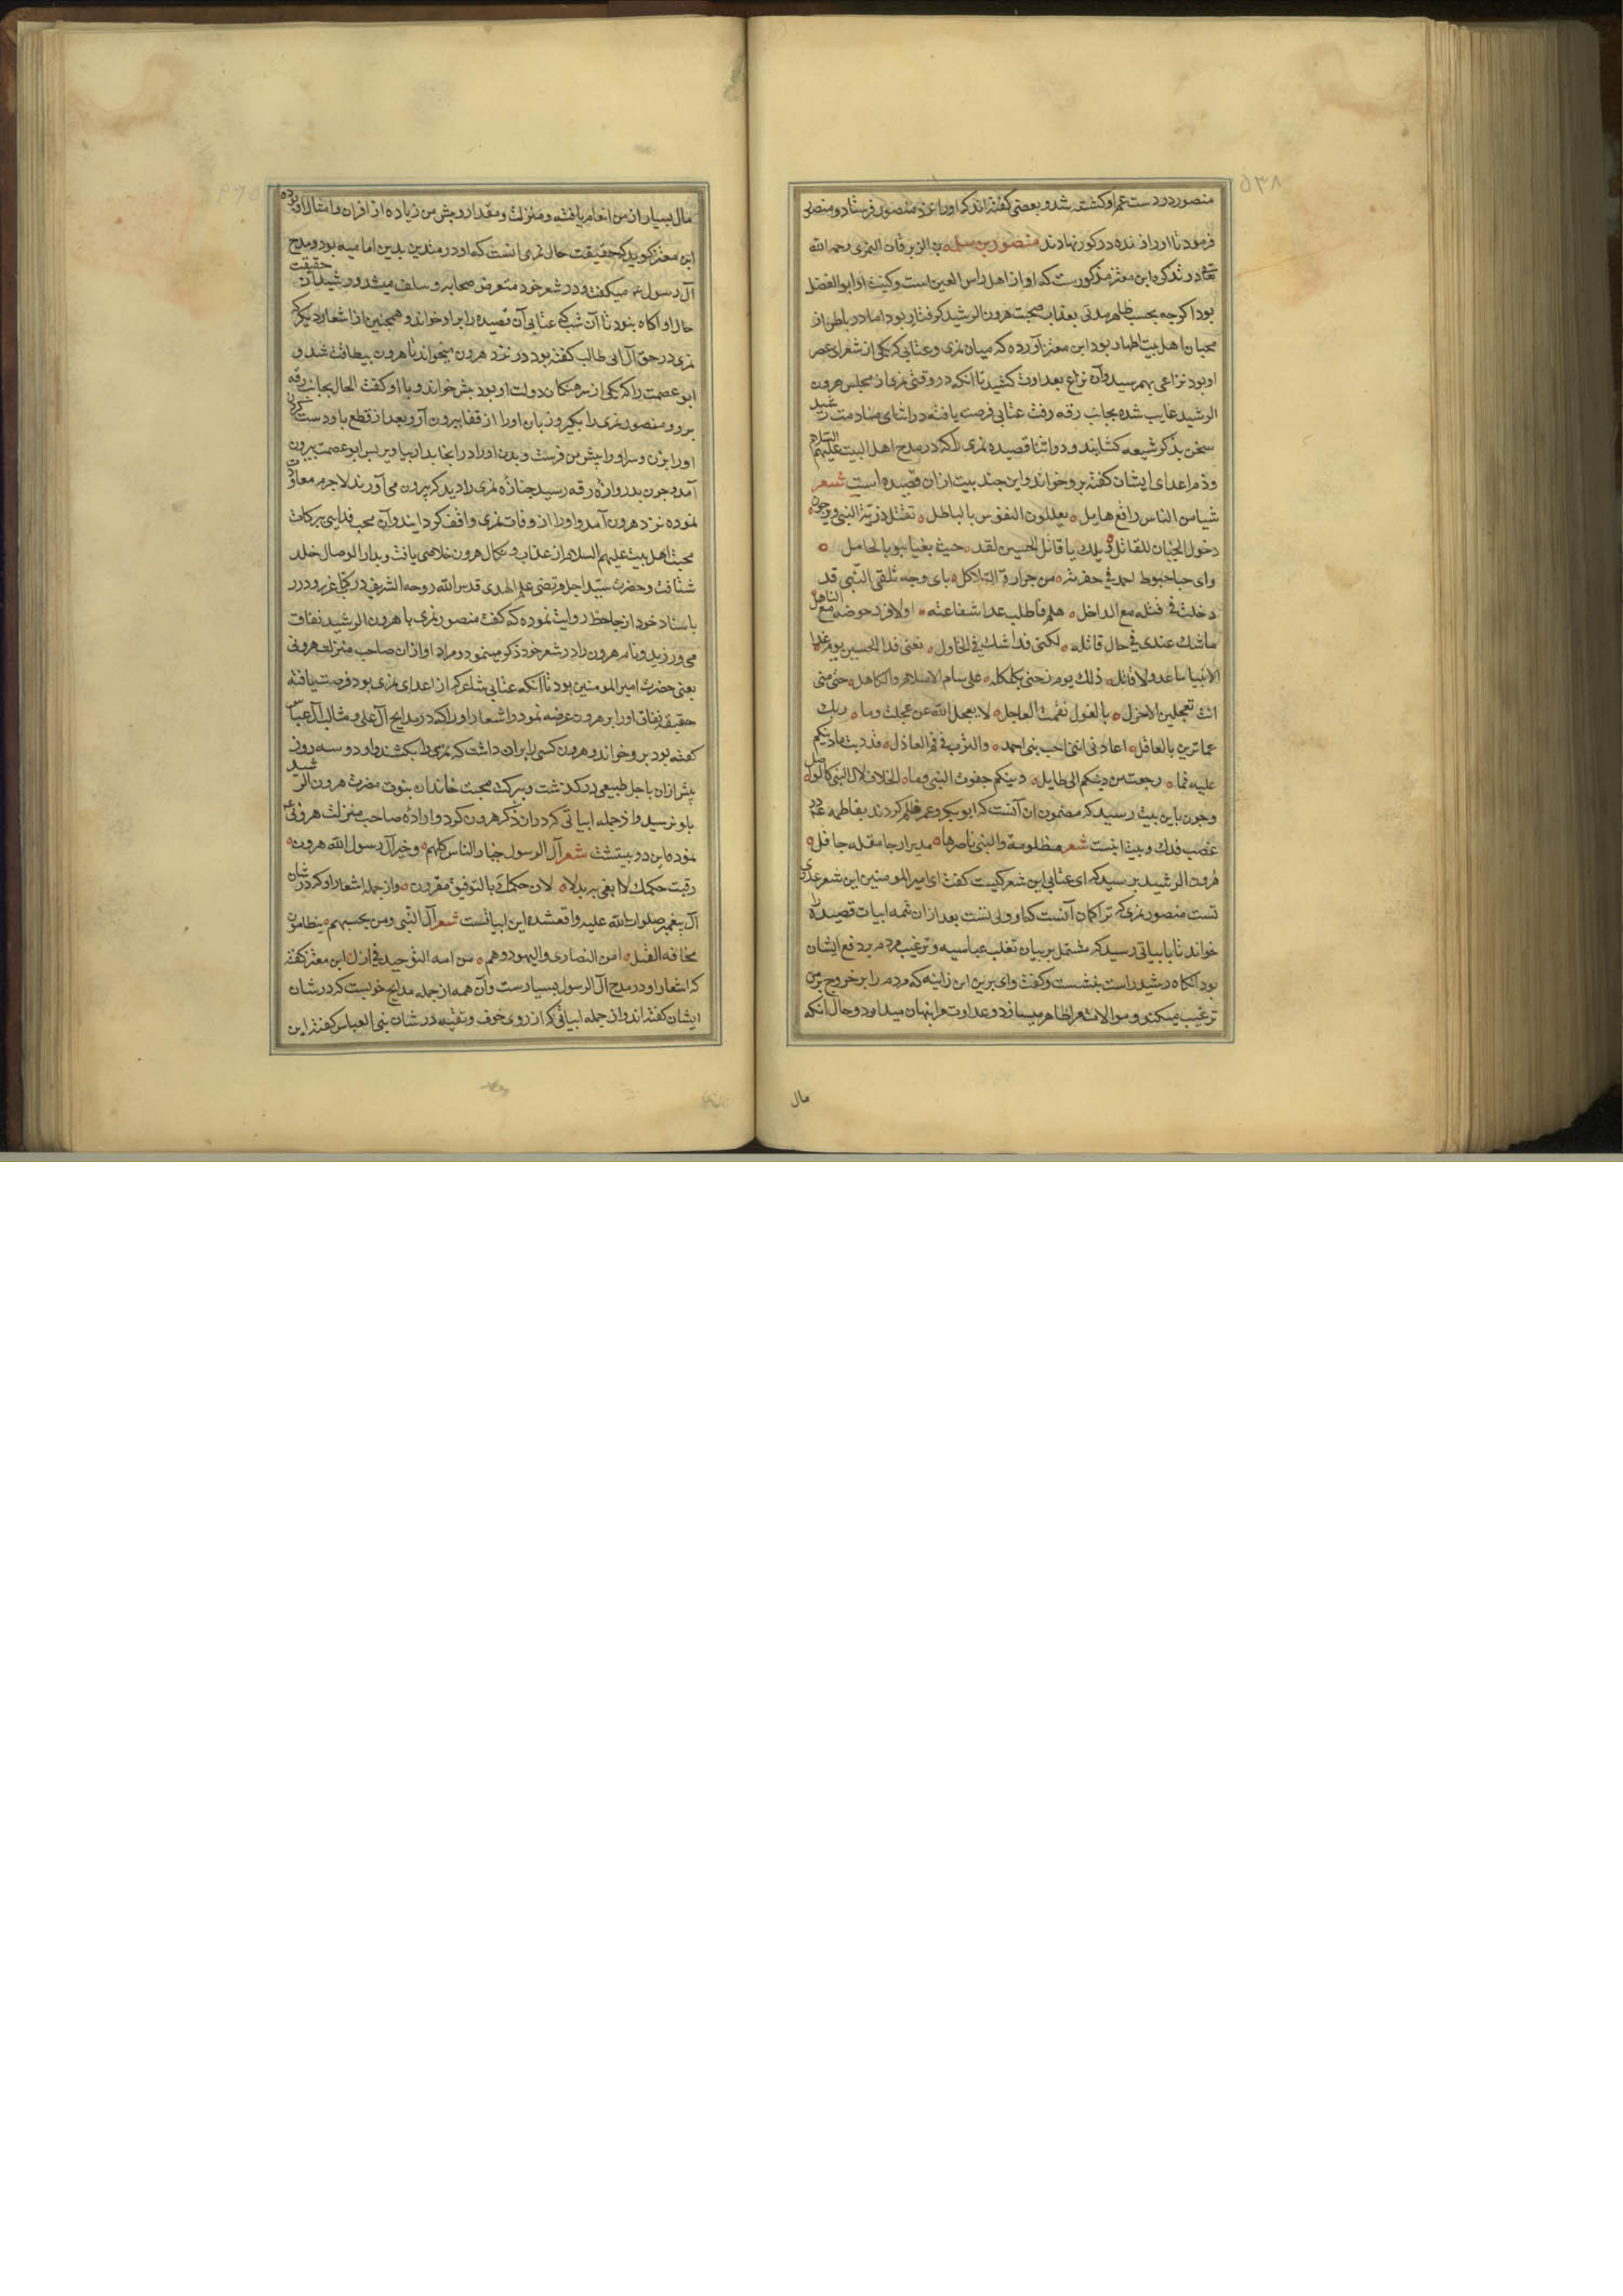 ۵۳۸
منصور در دست عم او کشته شد و بعضی کفته‌اند که او را نزد منصور فرستاد و منصور
فرمود تا او را زنده در کور نهادند منصور بن سلمه بن الزبرقان النمری رحمه الله
تعالی در تذکره ابن معتز مذکورست که او از اهل راس العین است و کنیت او ابوالفضل
بود اکرچه بحسب ظاهر مدتی بعذاب صحبت هرون الرشید کرفتار بود اما در باطن از
محبان اهل بیت اطهار بود ابن معتز آورده که میان نمری و عتابی که یکی از شعرای عصر
او بود نزاعی بهم رسید و آن نزاع بعداوت کشید تا آنکه در وقتی نمری از مجلس هرون
الرشید غایب شده بجانب رقه رفت عتابی فرصت یافته در اثنای منادمت رشید
سخن بذکر شیعه کشانید و در اثنا قصیده نمری را که در مدح اهل البیت علیهم السلام
و ذم اعدای ایشان کفته برو خواند و این چند بیت از آن قصیده است شعر
شیا من الناس راقع هامل ه یعللون النفوس بالباطل ه تقتل ذریة النبی ویرجون
دخول الجنان للقاتل ه ویلك یا قاتل الحسین لقد حیث بعیا بوبالحامل ه
وای حبا حبوط احمد فی حفرته ه من حرارة الثاکل ه بای وجه تلقی النبی قد
دخلت فی قتله مع الداخل ه هلم فاطلب غدا شفاعته ه اولا فرد حوضه مع الناهل
ما شك عندی فی حال قاتله ه لکننی قد اشك فی الخاذل ه نفسی فدا الحسین یوم غدا
الا المنایا غدو لا قافل ه ذلك یوم نحنی بکلکله ه علی سنام الاسلام والکاهل ه حتی متی
انت تعجلین الاخزل ه بالغول نقمت العاجل ه لا یعجل الله عن عجلت وما ه ربك
عما ترین بالغافل ه اعاذنی اننی احب بنی احمد ه والترب فی فم العاذل ه قد دنت ما دنتکم
علیه فما ه رجعت من دینکم الی طایل ه دینکم جفوت النبی وما ه الجافی لال النبی کالواصل
و چون باین بیت رسید که مضمون آن آنست که ابوبکر و عمر ظلم کردند بفاطمه ع و در
غصب فدك و بیت اینست شعر مظلومة والنبی ناصرها ه تدیر ارجا مقله جافل ه
هرون الرشید پرسید که ای عتابی این شعر کیست کفت ای امیر المومنین این شعر عدوی
تست منصور نمری که ترا کمان آنست که او ولی تست بعد از آن تتمه ابیات قصیده را
خواند تا بابیاتی رسید که مشتمل بر بیان تغلب عباسیه و ترغیب مردم بر دفع ایشان
بود آنکاه رشید راست بنشست و کفت وای برین ابن زانیه که مردم را بر خروج بر من
ترغیب میکند و موالات مرا ظاهر میسازد و عداوت مرا پنهان میدارد و حال آنکه
مال
مال بسیار از من انعام یافته و منزلت و مقدار و پیش من زیاده از اقران و امثال او بوده
ابن معتز کوید که حقیقت حال نمری آنست که او در متدین بدین امامیه بود و مدح
آل رسول ع میکفت و در شعر خود متعرض صحابه و سلف میشد و رشید از حقیقت
حال او آکاه نبود تا آن شب که عتابی آن قصیده را برو خواند و همچنین از اشعار دیکر که
نمری در حق آل ابی طالب کفته بود در نزد هرون میخواند تا هرون بیطاقت شد و
ابو عصمت را که یکی از سرهنکان دولت او بود پیش خواند و با او کفت الحال بجانب رقه
برو و منصور نمری را بکیر و زبان او را از قفا بیرون آر و بعد از قطع پا و دست کردن
او را بزن و سر او را پیش من فرست و بدن او را در انجا بدار بیاویز پس ابو عصمت بیرون
آمد و چون بدروازه رقه رسید جنازه نمری را دید که بیرون می آورند لاجرم معاودت
نموده نزد هرون آمد و او را از وفات نمری واقف کردانید و آن محب فدایی ببرکات
محبت اهل بیت علیهم السلام از عذاب و نکال هرون خلاصی یافت و بدار الوصال خلد
شتافت و حضرت سید اجل مرتضی علم الهدی قدس الله روحه الشریف در کتاب غرر و درر
باسناد خود از جاحظ روایت نموده که کفت منصور نمری با هرون الرشید نفاق
می ورزید و نام هرون را در شعر خود ذکر مینمود و مراد او از آن صاحب منزلت هرونی
یعنی حضرت امیر المومنین بود تا آنکه عتابی شاعر که از اعدای نمری بود فرصت یافته
حقیقت نفاق او را بر هرون عرضه نمود و اشعار او را که در مدایح آل علی و مثالب آل عباس
کفته بود برو خواند و هرون کسی را بران داشت که نمری را بکشند و او دو سه روز
پیش از آن باجل طبیعی درکذشت و ببرکت محبت خاندان نبوت مضرت هرون الرشید
باو نرسید و از جمله ابیاتی که در ان ذکر هرون کرد و اراده صاحب منزلت هرونی ع
نموده این دو بیتست شعر آل الرسول خیار الناس کلهم ه وخیر آل رسول الله هرون ه
رقبت حکمك لا ابغی به بدلا ه لان حکمك بالتوفیق مقرون ه و از جمله اشعار او که در شان
آل پیغمبر صلوات الله علیه واقعشده این ابیاتست شعر آل النبی ومن یحبهم ه یتطامنون
مخافة القتل ه امن النصاری والیهود وهم ه من امه التوحید فی ازل ابن معتز کفته
که اشعار او در مدح آل الرسول بسیارست و آن همه از جمله مدایح خوبست که در شان
ایشان کفته‌اند و از جمله ابیاتی که از روی خوف و تقیه در شان بنی العباس کفته این